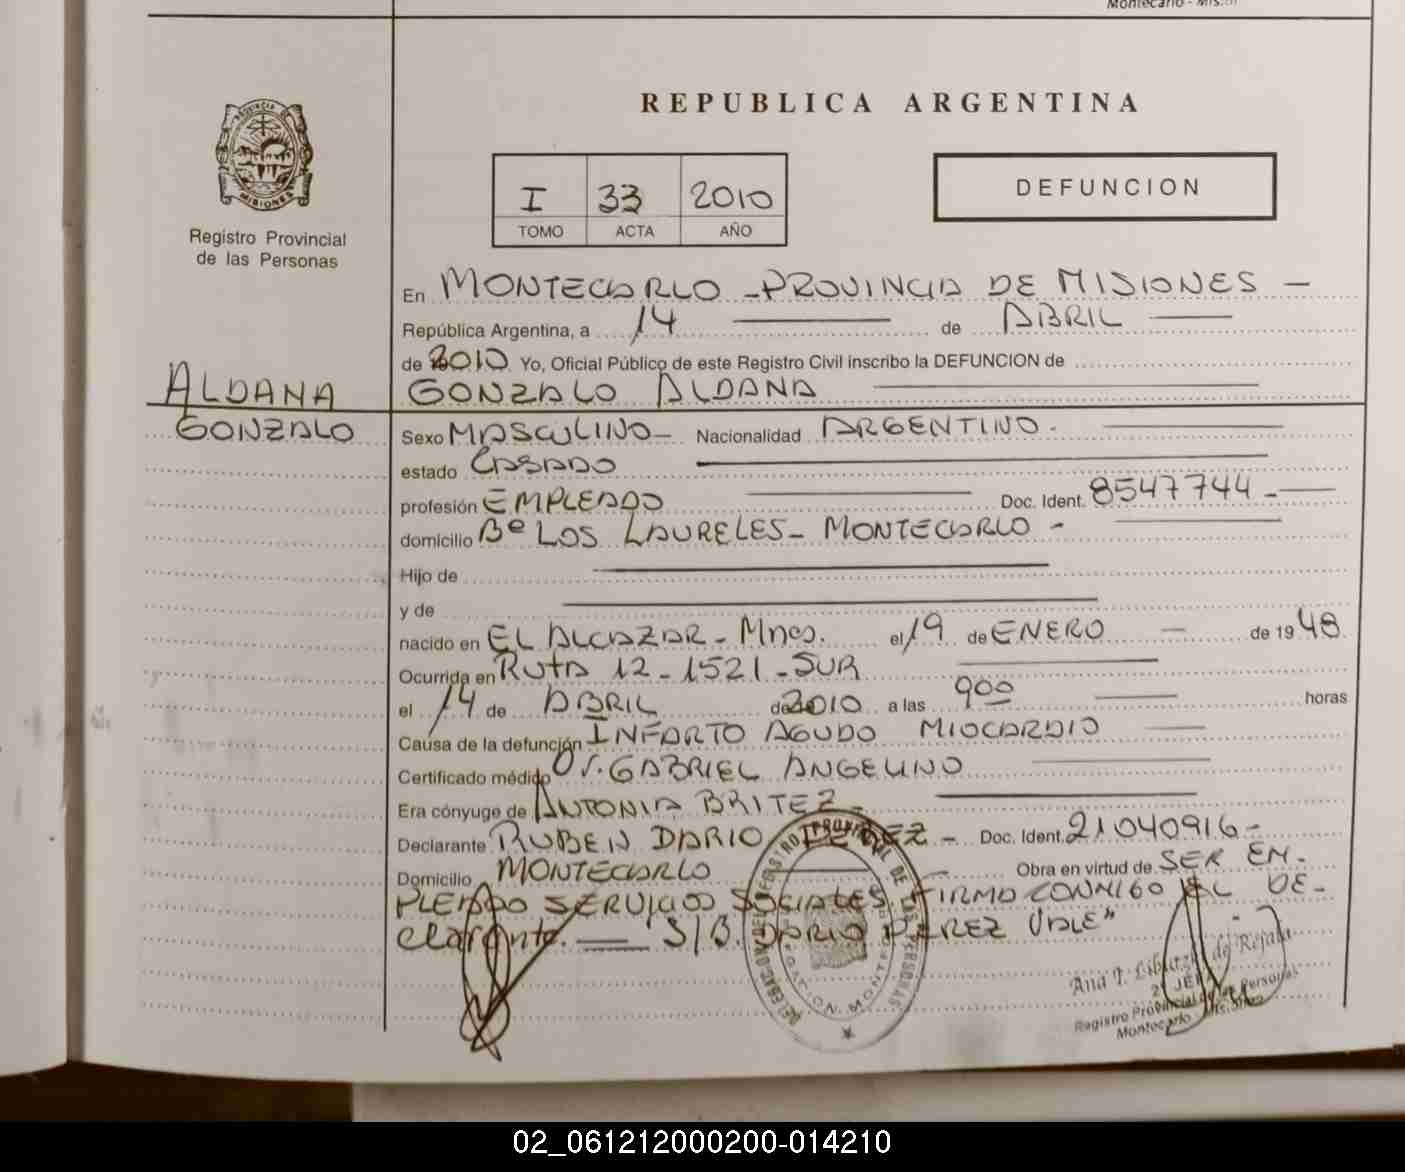 Montecarlo - Mis.
REPUBLICA ARGENTINA
PROVINCIA
MISIONES
Registro Provincial
de las Personas
I 33 2010
TOMO ACTA AÑO
DEFUNCION
En MONTECARLO - PROVINCIA DE MISIONES -
República Argentina, a 14 de ABRIL
de 2010 Yo, Oficial Público de este Registro Civil inscribo la DEFUNCION de
ALDANA
GONZALO
GONZALO ALDANA
Sexo MASCULINO - Nacionalidad ARGENTINO.
estado CASADO
profesión EMPLEADO Doc. Ident. 8547744 -
domicilio Bº LOS LAURELES - MONTECARLO -
Hijo de
y de
nacido en EL ALCAZAR - Mnes. el 19 de ENERO - de 1948
Ocurrida en RUTA 12 - 1521 - SUR
el 14 de ABRIL de 2010 a las 900 horas
Causa de la defunción INFARTO AGUDO MIOCARDIO
Certificado médico Dr. GABRIEL ANGELINO
Era cónyuge de ANTONIA BRITEZ -
Declarante RUBEN DARIO PEREZ - Doc. Ident. 21040916 -
Domicilio MONTECARLO Obra en virtud de SER EM-
PLEADO SERVICIOS SOCIALES FIRMO CONMIGO EL DE-
clarante. S/B. DARIO PEREZ VALE"
DELEGACION DEL REGISTRO PROVINCIAL DE LAS PERSONAS
Ana T. de Rejala
2º JEFE
Registro Provincial de las Personas
Montecarlo - Misiones
02_061212000200-014210